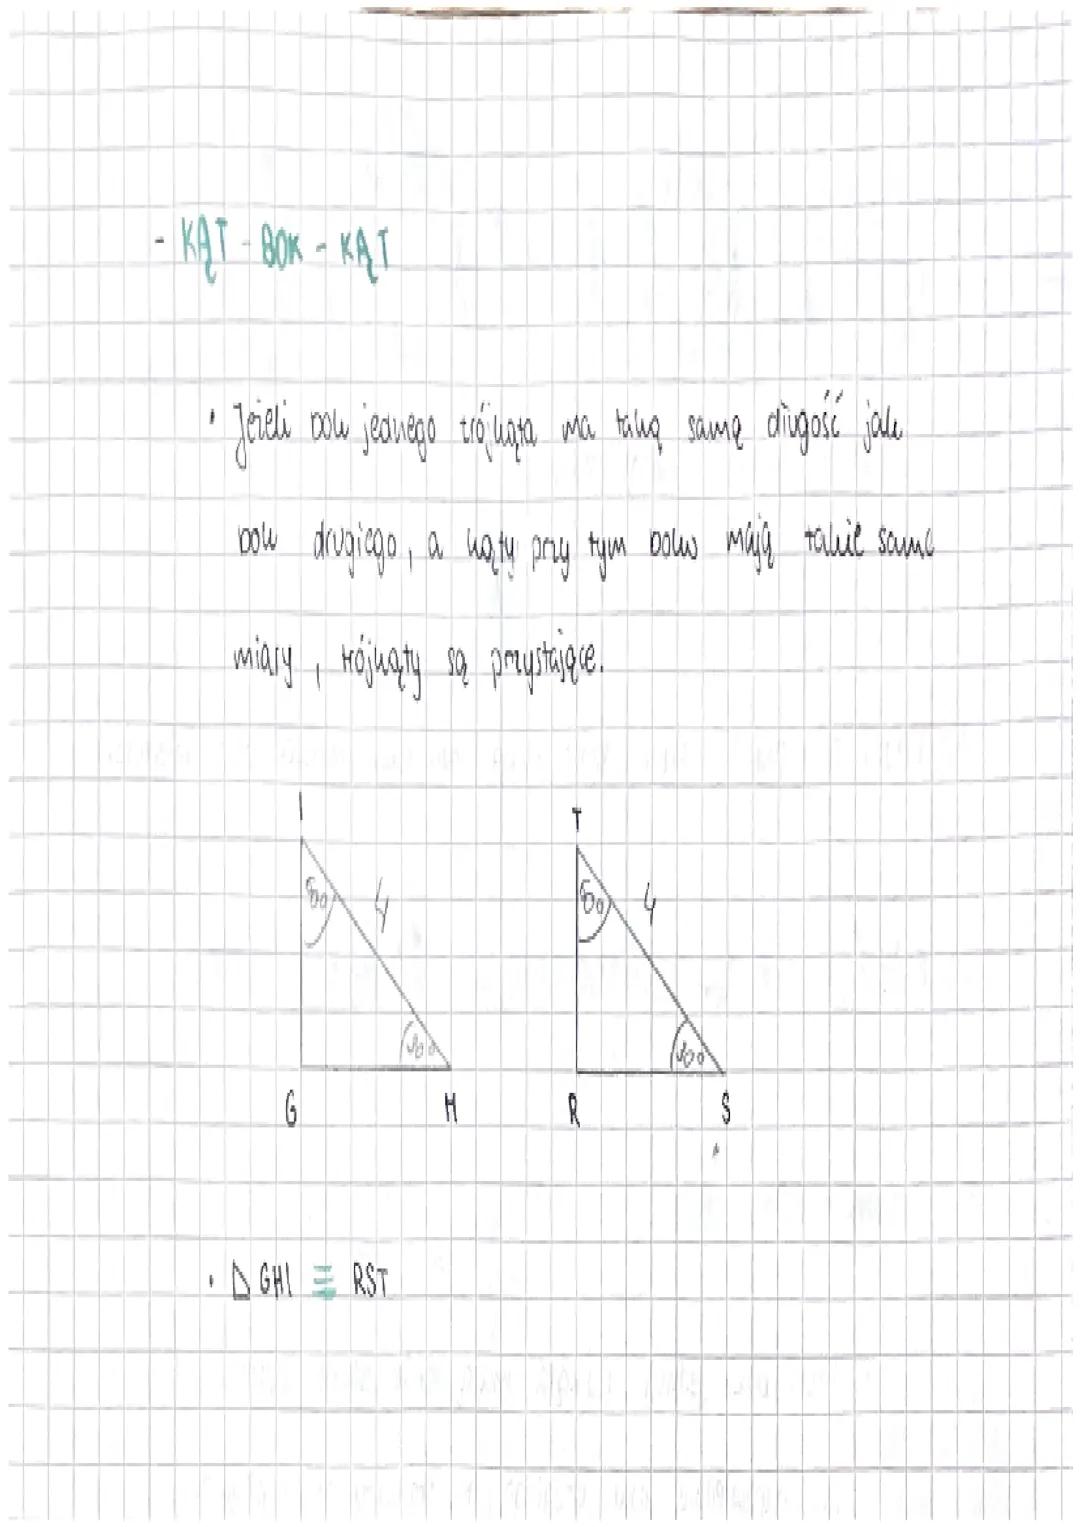 - KĄT - BOK - KĄT
• Jeżeli bok jednego trójkąta ma taką samą długość jak
bok drugiego, a kąty przy tym boku mają takie same
miary, trójkąty są przystające.
I T
4 4
G H R S
• △ GHI ≡ RST